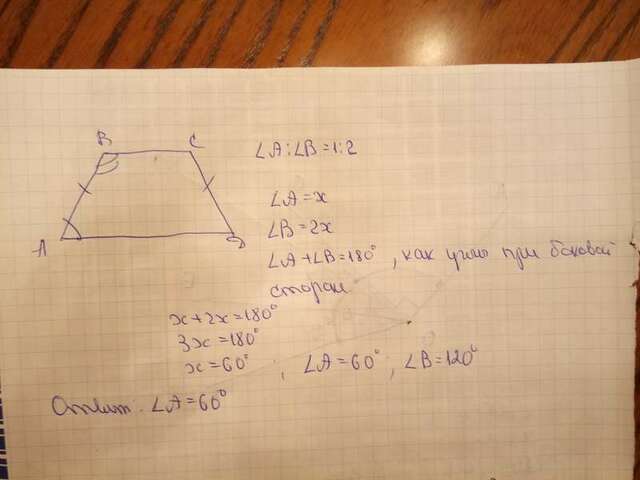 B C
A D
∠A:∠B=1:2
∠A=x
∠B=2x
∠A+∠B=180°, как углы при боковой
сторон
x+2x=180°
3x=180°
x=60° ; ∠A=60° ; ∠B=120°
Ответ: ∠A=60°